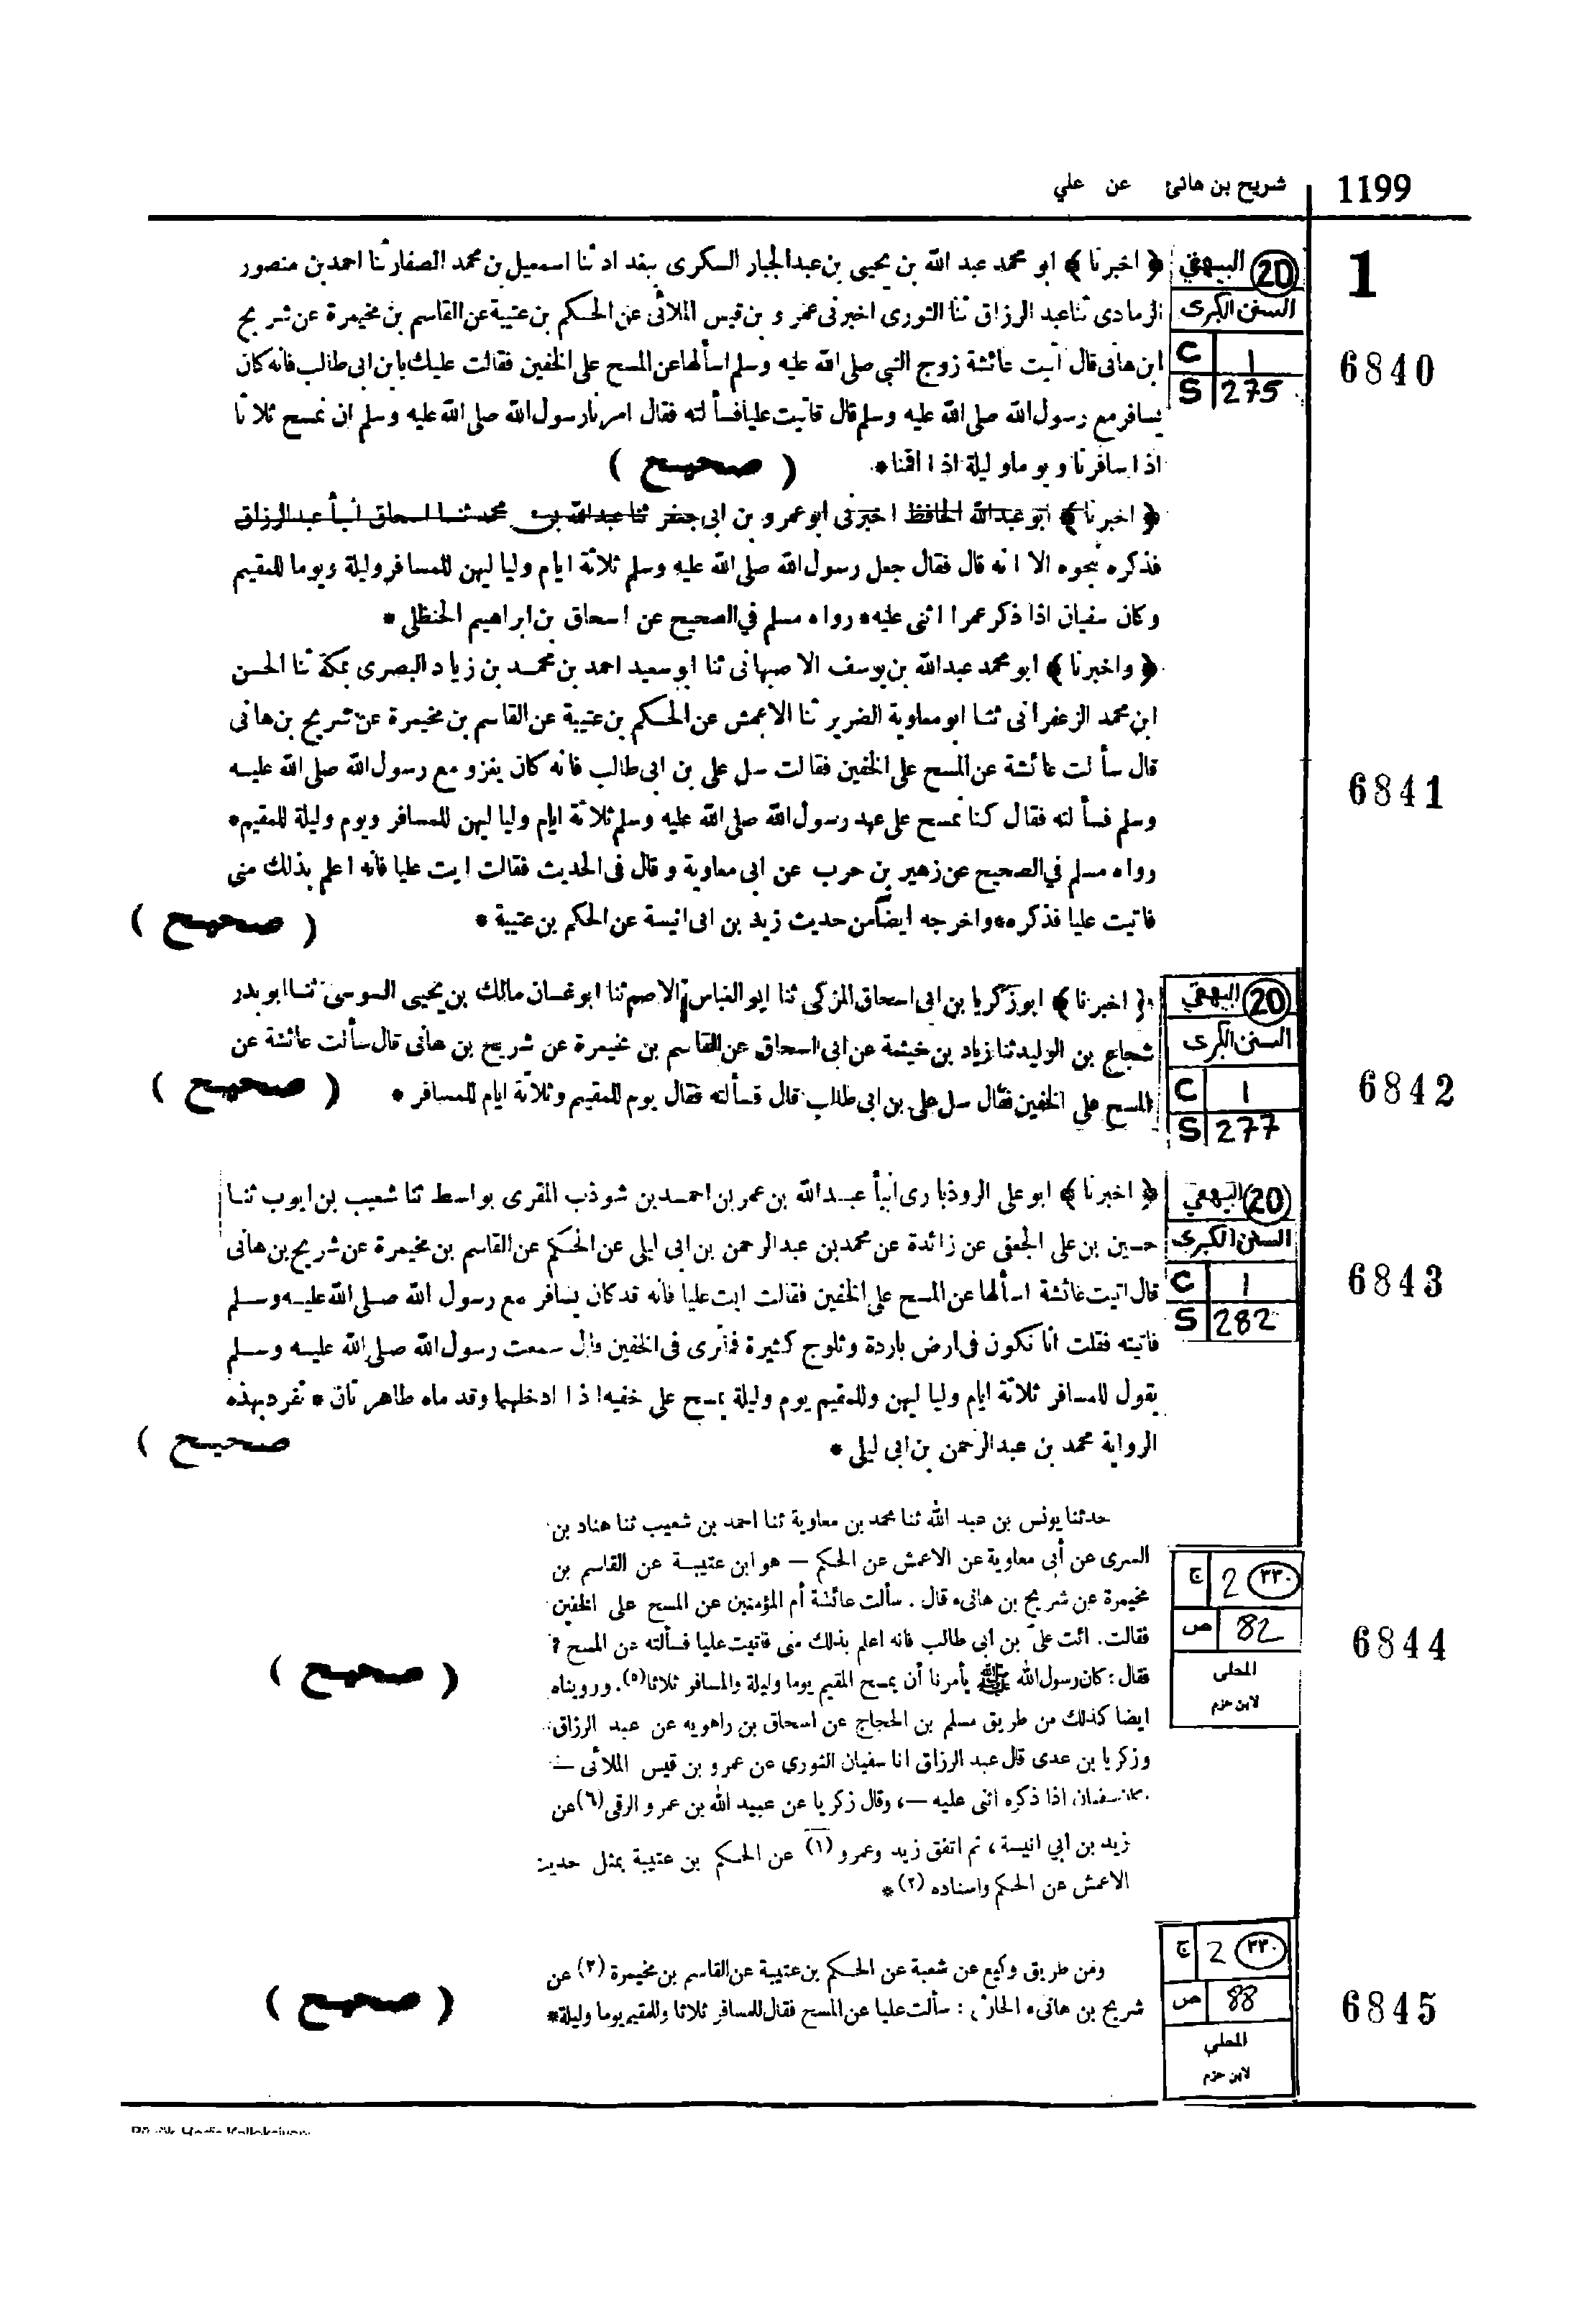 1199 شريح بن هانئ عن علي
1
20 البيهقي
السنن الكبرى
C 1
S 275
6840
﴿ اخبرنا ﴾ ابو محمد عبد الله بن يحيى بن عبدالجبار السكرى ببغداد ثنا اسمعيل بن محمد الصفار ثنا احمد بن منصور
الرمادى ثنا عبد الرزاق ثنا الثورى اخبرنى عمرو بن قيس الملائى عن الحكم بن عتيبة عن القاسم بن مخيمرة عن شريح
ابن هانى قال اتيت عائشة زوج النبى صلى الله عليه وسلم اسألها عن المسح على الخفين فقالت عليك بابن ابى طالب فانه كان
يسافر مع رسول الله صلى الله عليه وسلم قال فاتيت عليا فسألته فقال امرنا رسول الله صلى الله عليه وسلم ان نمسح ثلاثا
اذا سافرنا ويوما وليلة اذا اقمنا * ( صحيح )
﴿ اخبرنا ﴾ ابو عبدالله الحافظ اخبرنى ابو عمرو بن ابى جعفر ثنا عبدالله بن محمد ثنا اسحاق انبأ عبدالرزاق
فذكره بنحوه الا انه قال فقال جعل رسول الله صلى الله عليه وسلم ثلاثة ايام ولياليهن للمسافر وليلة ويوما للمقيم
وكان سفيان اذا ذكر عمرا اثنى عليه * رواه مسلم في الصحيح عن اسحاق بن ابراهيم الحنظلى *
﴿ واخبرنا ﴾ ابو محمد عبدالله بن يوسف الاصبهانى ثنا ابو سعيد احمد بن محمد بن زياد البصرى بمكة ثنا الحسن
ابن محمد الزعفرانى ثنا ابو معاوية الضرير ثنا الاعمش عن الحكم بن عتيبة عن القاسم بن مخيمرة عن شريح بن هانى
قال سألت عائشة عن المسح على الخفين فقالت سل على بن ابى طالب فانه كان يغزو مع رسول الله صلى الله عليه
6841
وسلم فسألته فقال كنا نمسح على عهد رسول الله صلى الله عليه وسلم ثلاثة ايام ولياليهن للمسافر ويوم وليلة للمقيم *
رواه مسلم في الصحيح عن زهير بن حرب عن ابى معاوية وقال فى الحديث فقالت ايت عليا فانه اعلم بذلك منى
فاتيت عليا فذكره * واخرجه ايضا من حديث زيد بن ابى انيسة عن الحكم بن عتيبة * ( صحيح )
20 البيهقي
السنن الكبرى
C 1
S 277
6842
﴿ اخبرنا ﴾ ابو زكريا بن ابى اسحاق المزكى ثنا ابو العباس الاصم ثنا ابو غسان مالك بن يحيى السوسى ثنا ابو بدر
شجاع بن الوليد ثنا زياد بن خيثمة عن ابى اسحاق عن القاسم بن مخيمرة عن شريح بن هانى قال سألت عائشة عن
المسح على الخفين فقال سل على بن ابى طالب قال فسألته فقال يوم للمقيم وثلاثة ايام للمسافر * ( صحيح )
20 البيهقي
السنن الكبرى
C 1
S 282
6843
﴿ اخبرنا ﴾ ابو على الروذبارى انبأ عبدالله بن عمر بن احمد بن شوذب المقرى بواسط ثنا شعيب بن ايوب ثنا
حسين بن على الجعفى عن زائدة عن محمد بن عبدالرحمن بن ابى ليلى عن الحكم عن القاسم بن مخيمرة عن شريح بن هانى
قال اتيت عائشة اسألها عن المسح على الخفين فقالت ايت عليا فانه قد كان يسافر مع رسول الله صلى الله عليه وسلم
فاتيته فقلت انا نكون فى ارض باردة وثلوج كثيرة فما ترى فى الخفين قال سمعت رسول الله صلى الله عليه وسلم
يقول للمسافر ثلاثة ايام ولياليهن وللمقيم يوم وليلة يمسح على خفيه اذا ادخلهما وقدماه طاهرتان * تفرد بهذه
الرواية محمد بن عبدالرحمن بن ابى ليلى * صحيح )
٣٣٠ 2 ج
82 ص
المحلى
لابن حزم
6844
حدثنا يونس بن عبد الله ثنا محمد بن معاوية ثنا احمد بن شعيب ثنا هناد بن
السرى عن أبى معاوية عن الاعمش عن الحكم — هو ابن عتيبة عن القاسم بن
مخيمرة عن شريح بن هانىء قال . سألت عائشة أم المؤمنين عن المسح على الخفين
فقالت. ائت على بن ابى طالب فانه اعلم بذلك منى فاتيت عليا فسألته عن المسح ؟
فقال : كان رسول الله ﷺ يأمرنا أن يمسح المقيم يوما وليلة والمسافر ثلاثا (٥). ورويناه ( صحيح )
ايضا كذلك من طريق مسلم بن الحجاج عن اسحاق بن راهويه عن عبد الرزاق
وزكريا بن عدى قال عبد الرزاق انا سفيان الثورى عن عمرو بن قيس الملائى —
كان سفيان اذا ذكره اثنى عليه —، وقال زكريا عن عبيد الله بن عمرو الرقى (٦) عن
زيد بن أبي انيسة ، ثم اتفق زيد وعمرو (١) عن الحكم بن عتيبة بمثل حديث
الاعمش عن الحكم واسناده (٢) *
٣٣٠ 2 ج
88 ص
المحلي
لابن حزم
6845
ومن طريق وكيع عن شعبة عن الحكم بن عتيبة عن القاسم بن مخيمرة (٣) عن
شريح بن هانىء : سألت عليا عن المسح فقال للمسافر ثلاثا وللمقيم يوما وليلة * ( صحيح )